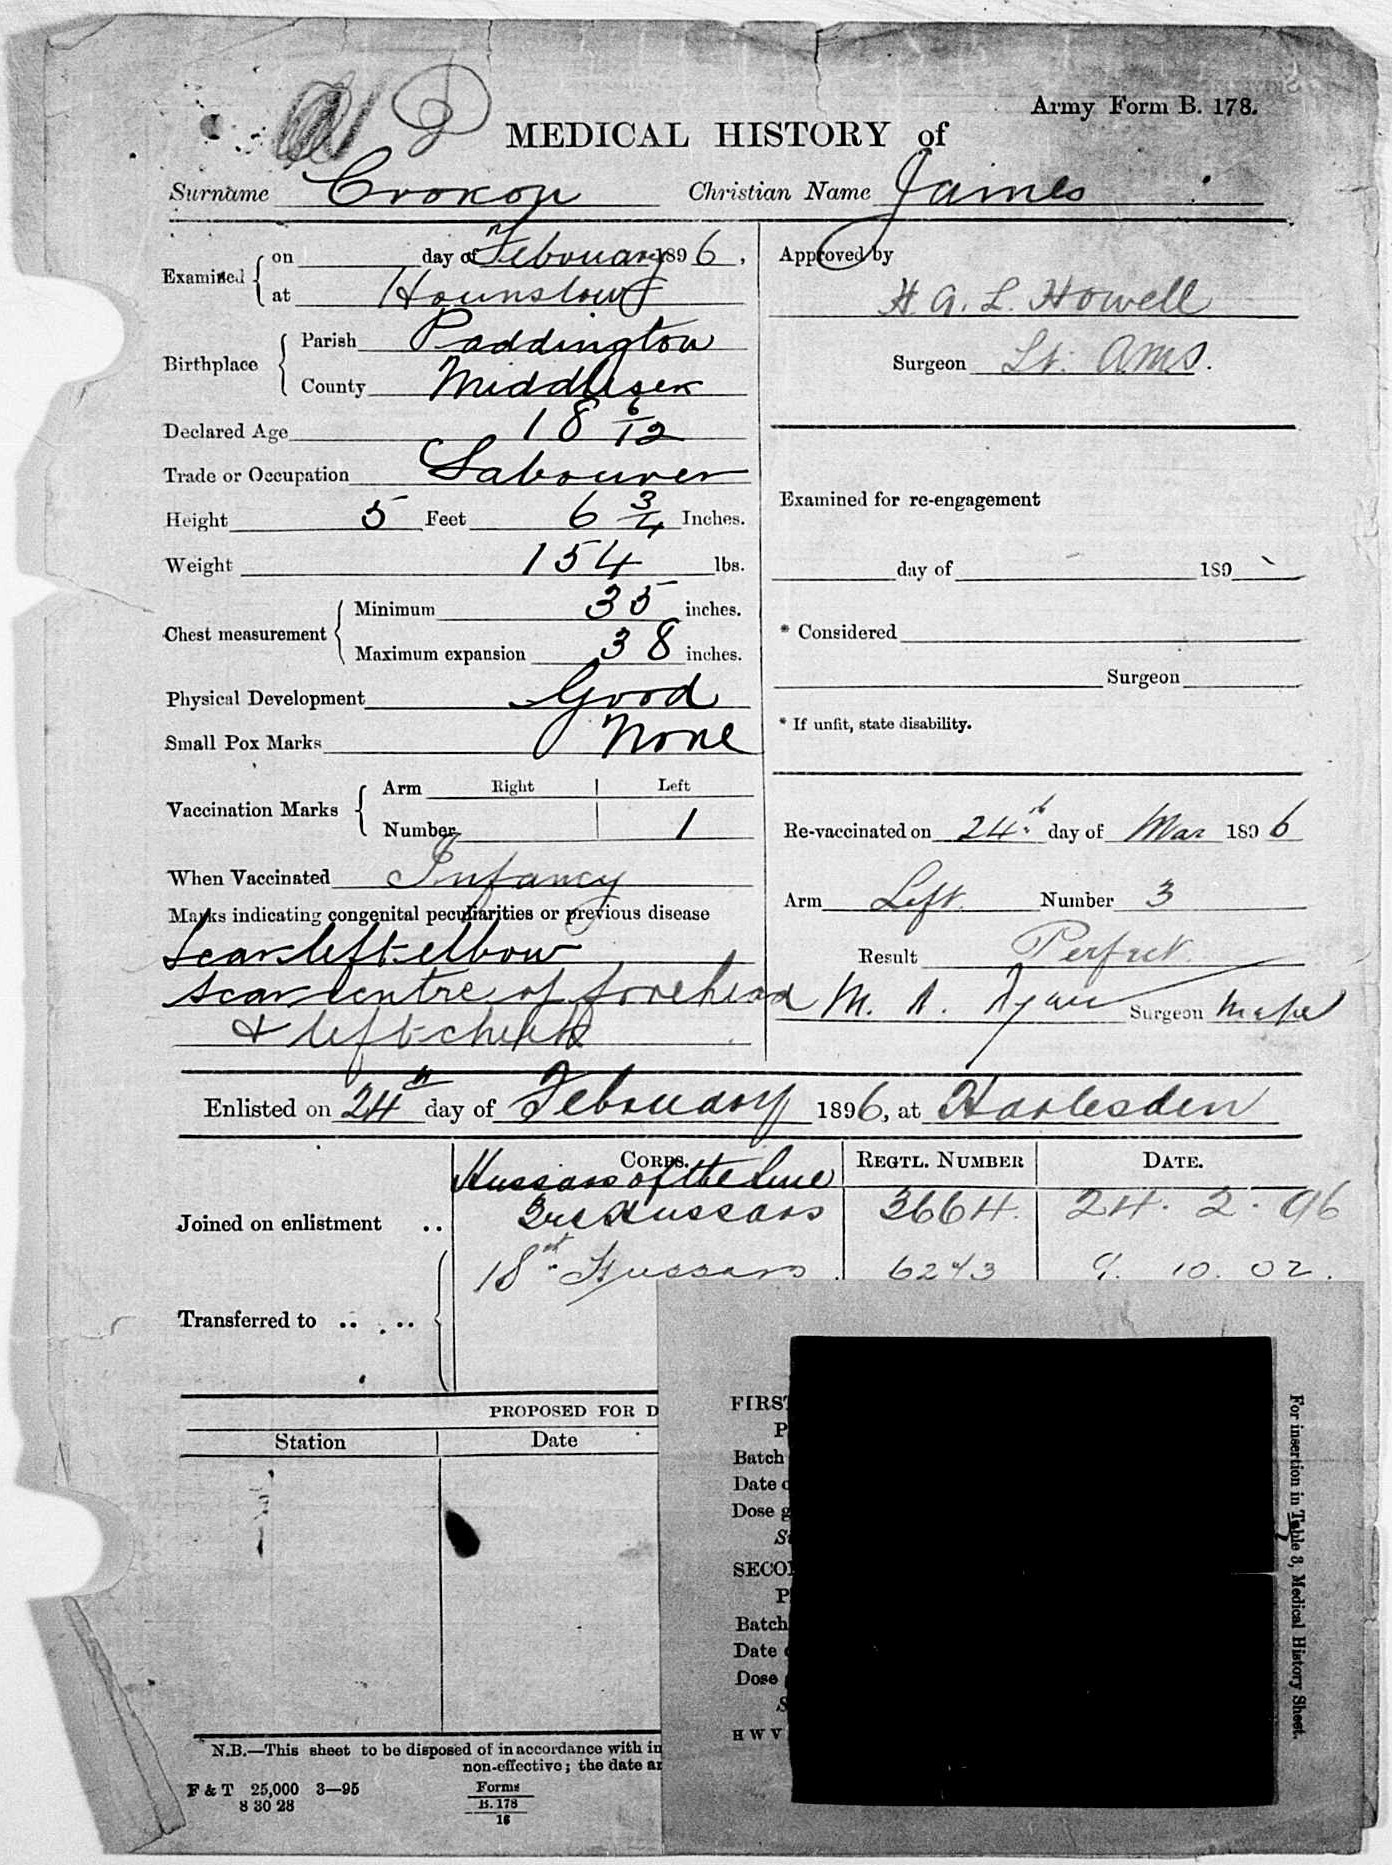 Army Form B. 178.
MEDICAL HISTORY of
Surname Croxon Christian Name James
Examined on day of February 1896,
at Hounslow
Birthplace Parish Paddington
County Middlesex
Declared Age 18 6/12
Trade or Occupation Labourer
Height 5 Feet 6 3/4 Inches.
Weight 154 lbs.
Chest measurement Minimum 35 inches.
Maximum expansion 38 inches.
Physical Development Good
Small Pox Marks None
Vaccination Marks Arm Right Left
Number 1
When Vaccinated Infancy
Marks indicating congenital peculiarities or previous disease
Scar left elbow
scar centre of forehead
& left cheek
Approved by
H. G. L. Howell
Surgeon Lt. AMS.
Examined for re-engagement
day of 189
* Considered
Surgeon
* If unfit, state disability.
Re-vaccinated on 24th day of Mar 1896
Arm Left Number 3
Result Perfect
M. Surgeon
Enlisted on 24th day of February 1896, at Harlesden
CORPS. REGTL. NUMBER DATE.
Hussars of the Line
Joined on enlistment .. 3rd Hussars 3664 24. 2. 96
18th Hussars 6243 9. 10. 02.
Transferred to .. ..
PROPOSED FOR D
Station Date
N.B.—This sheet to be disposed of in accordance with in
non-effective; the date an
F & T 25,000 3—95
8 30 28
Forms
B. 178
16
FIRST
P
Batch
Date o
Dose g
S
SECON
P
Batch
Date o
Dose
S
H W V
For insertion in Table 3, Medical History Sheet.